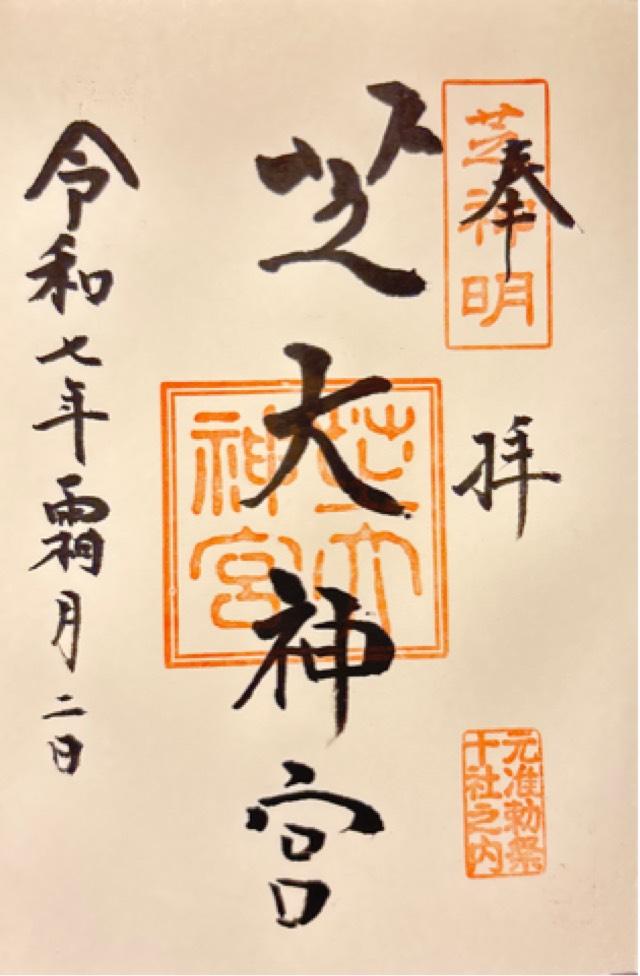 奉拝
芝神明
芝大神宮
芝大神宮
元准勅祭
十社之内
令和七年霜月二日